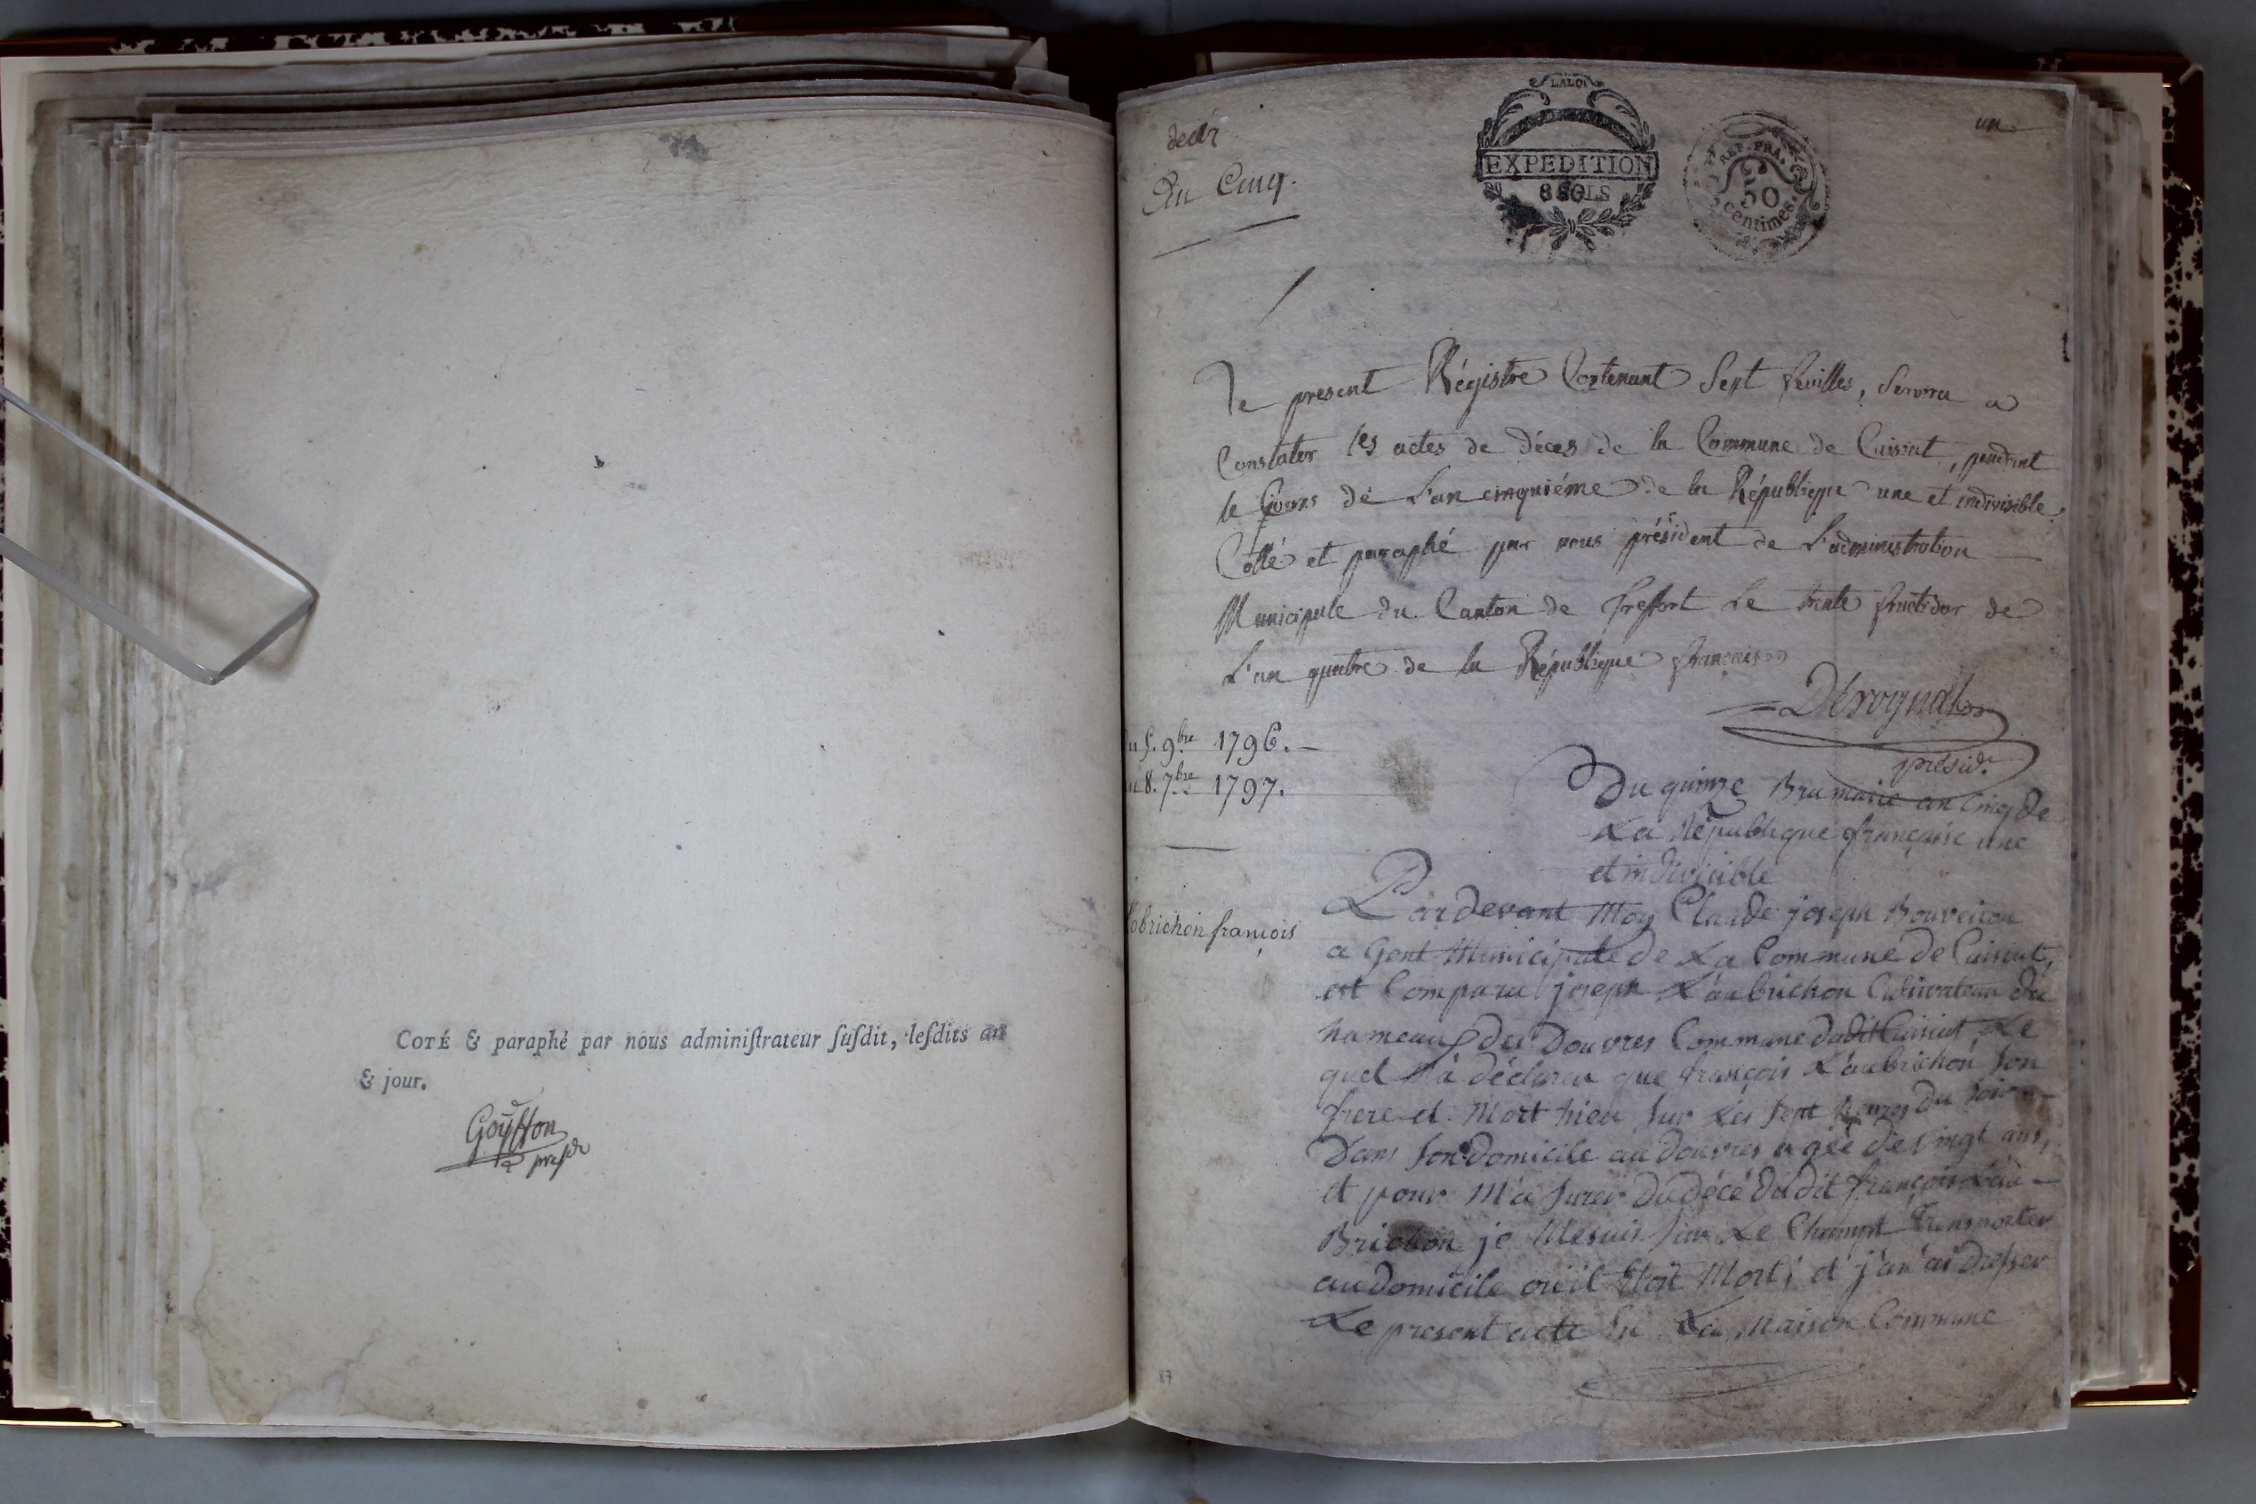 COTÉ & paraphé par nous adminiſtrateur ſuſdit, leſdits an
& jour.
Goÿffon
preſdt
LA LOI
EXPEDITION
8 SOLS
REP. FRA.
50
centimes.
un
decés
An Cinq.
Le present Régistre Contenant Sept feuilles, Servira a
Constater les actes de déces de la Commune de Cuisiat, pendant
le Cours de L'an cinquiéme de la République une et indivisible.
Cotté et paraphé par nous président de L'administration
Municipale du Canton de treffort Le trente fructidor de
L'an quatre de la République française
présid.t
5. 9bre 1796.
8. 7bre 1797.
Du quinze Brumaire an Cinq de
La République française une
et indivicible
L'obrichon françois
Pardevant Moy Claude joseph Bouveiron
a Gent Municipale de La Commune de Cuisiat,
est Comparu joseph L'aubrichon Cultivateur du
hameau des Douvres Commune dudit Cuisiat, Le
quel M'a déclarer que françois L'aubrichon Son
frere et Mort hier Sur Les Sept heures du Soir
Dans Son domicile au douvres agée de vingt ans,
et pour M'a Surer du décé dudit françois Lau-
Brichon je Mesuis Sur Le Champt Transporter
audomicile ou il Etoit Mort, et j'an ai dresser
Le present acte En La Maison Commune
87